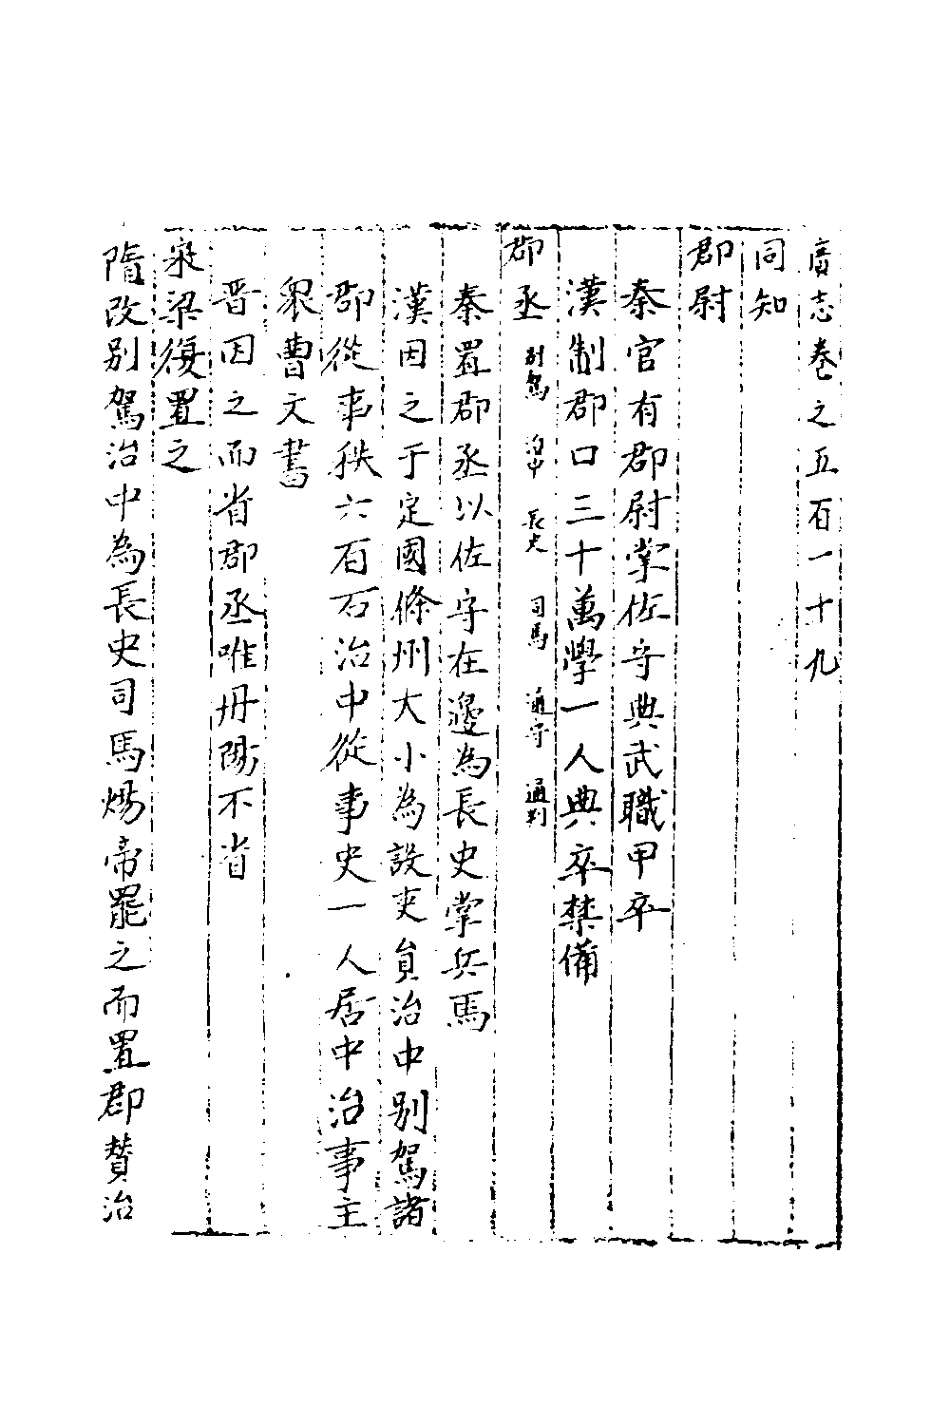 廣志卷之五百一十九
同知
郡尉
秦官有郡尉掌佐守典武職甲卒
漢制郡口三十萬學一人典卒禁備
郡丞 别駕 治中 長史 司馬 通守 通判
秦置郡丞以佐守在邊為長史掌兵馬
漢因之于定國條州大小為設吏員治中别駕諸
郡從事秩六百石治中從事史一人居中治事主
衆曹文書
晋因之而省郡丞唯丹陽不省
宋梁復置之
隋改别駕治中為長史司馬煬帝罷之而置郡贊治